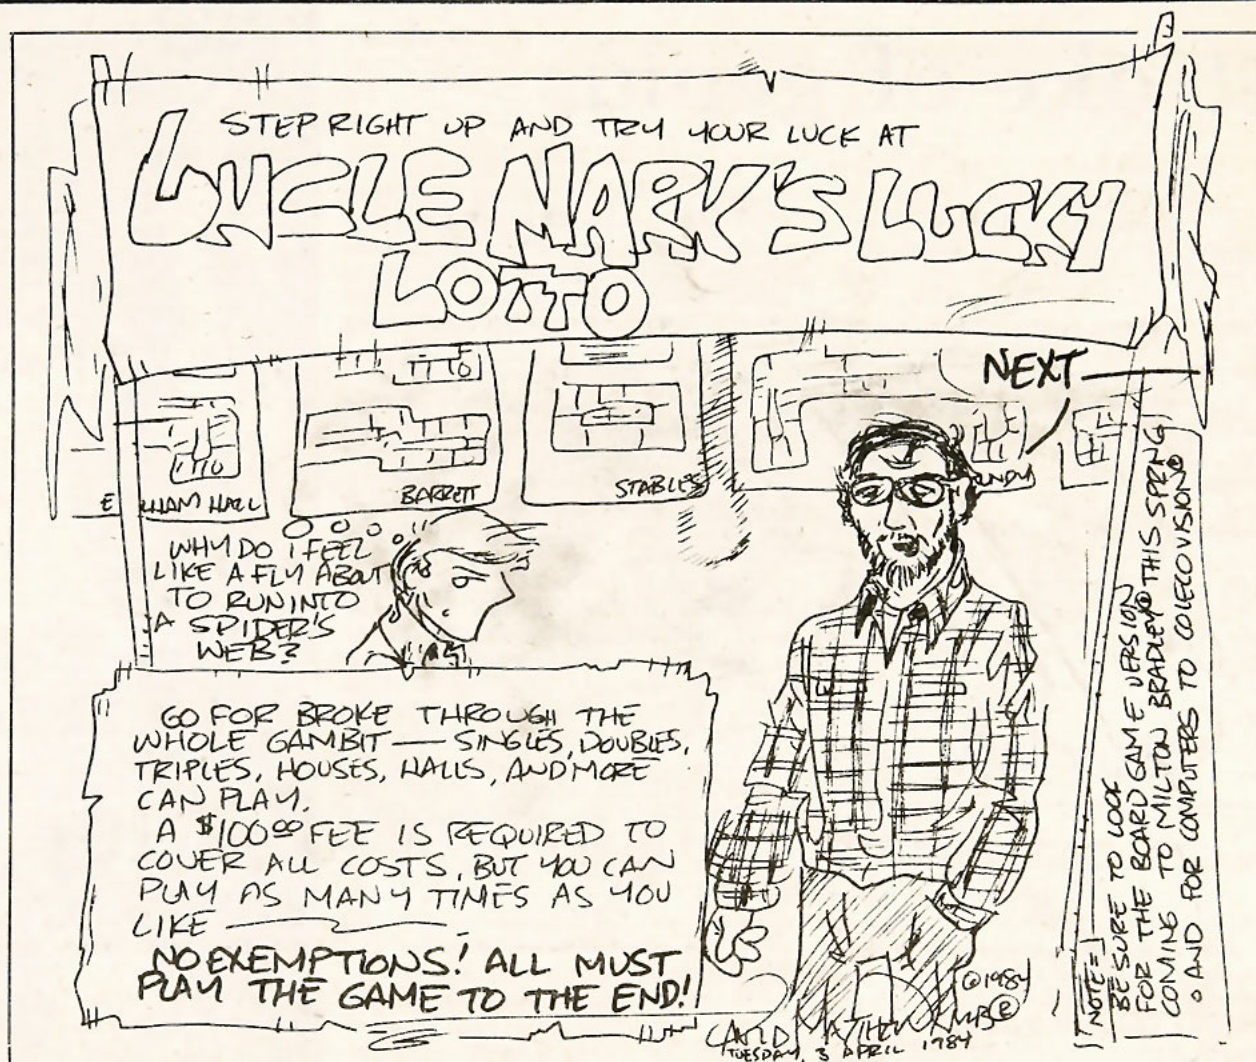 STEP RIGHT UP AND TRY YOUR LUCK AT
UNCLE MARK'S LUCKY
LOTTO
NEXT
HAM HALL
BARRETT
STABLES
WHY DO I FEEL
LIKE A FLY ABOUT
TO RUN INTO
A SPIDER'S
WEB?
GO FOR BROKE THROUGH THE
WHOLE GAMBIT — SINGLES, DOUBLES,
TRIPLES, HOUSES, HALLS, AND MORE
CAN PLAY.
A $100.00 FEE IS REQUIRED TO
COVER ALL COSTS, BUT YOU CAN
PLAY AS MANY TIMES AS YOU
LIKE —
NO EXEMPTIONS! ALL MUST
PLAY THE GAME TO THE END!
NOTE=
BE SURE TO LOOK
FOR THE BOARD GAME VERSION
COMING TO MILTON BRADLEY® THIS SPRING
AND FOR COMPUTERS TO COLECOVISION®
©1984
TUESDAY, 3 APRIL 1984